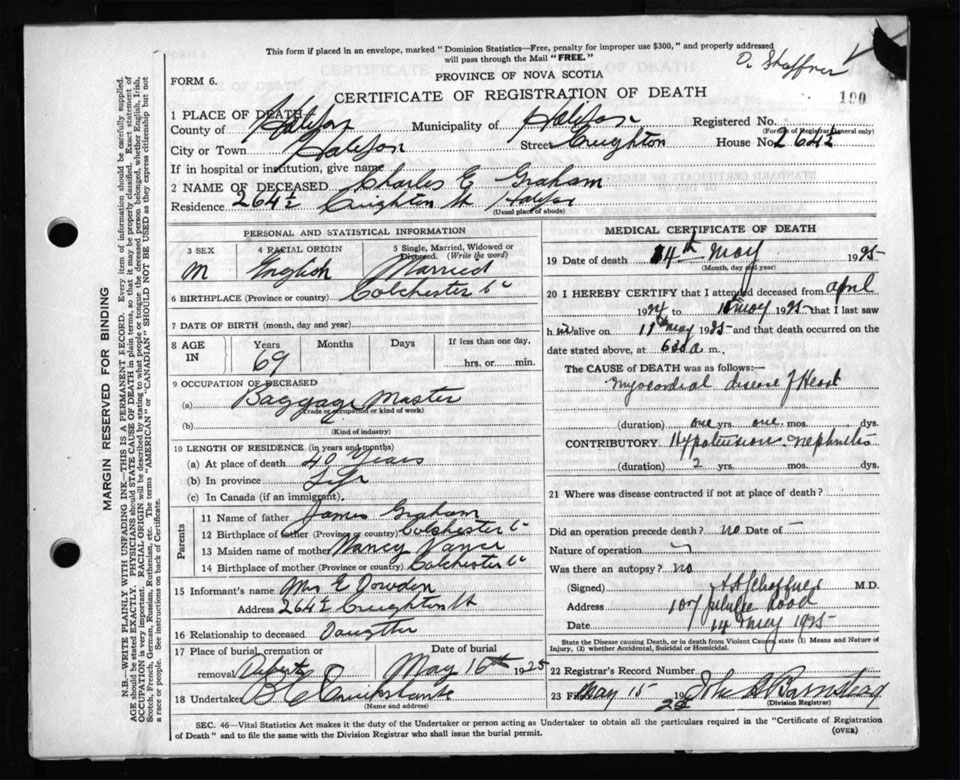 This form if placed in an envelope, marked "Dominion Statistics—Free, penalty for improper use $300," and properly addressed
will pass through the Mail "FREE."
PROVINCE OF NOVA SCOTIA
FORM 6.
CERTIFICATE OF REGISTRATION OF DEATH
190
1 PLACE OF DEATH
County of Halifax Municipality of Halifax Registered No.
(For use of Registrar General only)
City or Town Halifax Street Creighton House No. 264½
If in hospital or institution, give name
2 NAME OF DECEASED Charles E Graham
Residence 264½ Creighton St Halifax
(Usual place of abode)
PERSONAL AND STATISTICAL INFORMATION
3 SEX 4 RACIAL ORIGIN 5 Single, Married, Widowed or Divorced. (Write the word)
M English Married
6 BIRTHPLACE (Province or country) Colchester Co
7 DATE OF BIRTH (month, day and year)
8 AGE IN Years Months Days If less than one day,
69 hrs. or min.
9 OCCUPATION OF DECEASED
(a) Baggage Master
(Trade or occupation or kind of work)
(b)
(Kind of industry)
10 LENGTH OF RESIDENCE (in years and months)
(a) At place of death 40 Years
(b) In province Life
(c) In Canada (if an immigrant)
Parents
11 Name of father James Graham
12 Birthplace of father (Province or country) Colchester Co
13 Maiden name of mother Nancy Vance
14 Birthplace of mother (Province or country) Colchester Co
15 Informant's name Mrs E Dowden
Address 264½ Creighton St
16 Relationship to deceased Daughter
17 Place of burial, cremation or removal Date of burial
Debert May 16th 1925
18 Undertaker
(Name and address)
MEDICAL CERTIFICATE OF DEATH
19 Date of death 14th May 1925
(Month, day and year)
20 I HEREBY CERTIFY that I attended deceased from April
1924 to May 1925 that I last saw
h im alive on May 1925 and that death occurred on the
date stated above, at 630 a m.
The CAUSE OF DEATH was as follows:—
Myocardial disease of Heart
(duration) one yrs. one mos. dys.
CONTRIBUTORY Hypertension - nephritis
(duration) 2 yrs. mos. dys.
21 Where was disease contracted if not at place of death?
Did an operation precede death? no Date of —
Nature of operation
Was there an autopsy? no
(Signed) M.D.
Address 107 Road
Date 14 May 1925
State the Disease causing Death, or in death from Violent Causes, state (1) Means and Nature of
Injury, (2) whether Accidental, Suicidal or Homicidal.
22 Registrar's Record Number
23 Filed May 15 1925 John A Barnstead
(Division Registrar)
SEC. 46—Vital Statistics Act makes it the duty of the Undertaker or person acting as Undertaker to obtain all the particulars required in the "Certificate of Registration
of Death" and to file the same with the Division Registrar who shall issue the burial permit.
(OVER)
MARGIN RESERVED FOR BINDING
N.B.—WRITE PLAINLY WITH UNFADING INK—THIS IS A PERMANENT RECORD. Every item of information should be carefully supplied.
AGE should be stated EXACTLY. PHYSICIANS should STATE CAUSE OF DEATH in plain terms, so that it may be properly classified. Exact statement of
OCCUPATION is very important. RACIAL ORIGIN will be described by stating to what people or tongue the deceased person belonged, whether English, Irish,
Scotch, French, German, Russian, Ruthenian, etc. The terms "AMERICAN" or "CANADIAN" SHOULD NOT BE USED as they express citizenship but not
a race or people. See instructions on back of Certificate.